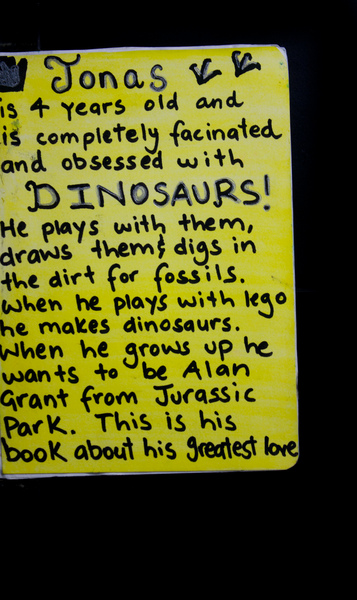 Jonas
is 4 years old and
is completely facinated
and obsessed with
DINOSAURS!
He plays with them,
draws them & digs in
the dirt for fossils.
When he plays with lego
he makes dinosaurs.
When he grows up he
wants to be Alan
Grant from Jurassic
Park. This is his
book about his greatest love